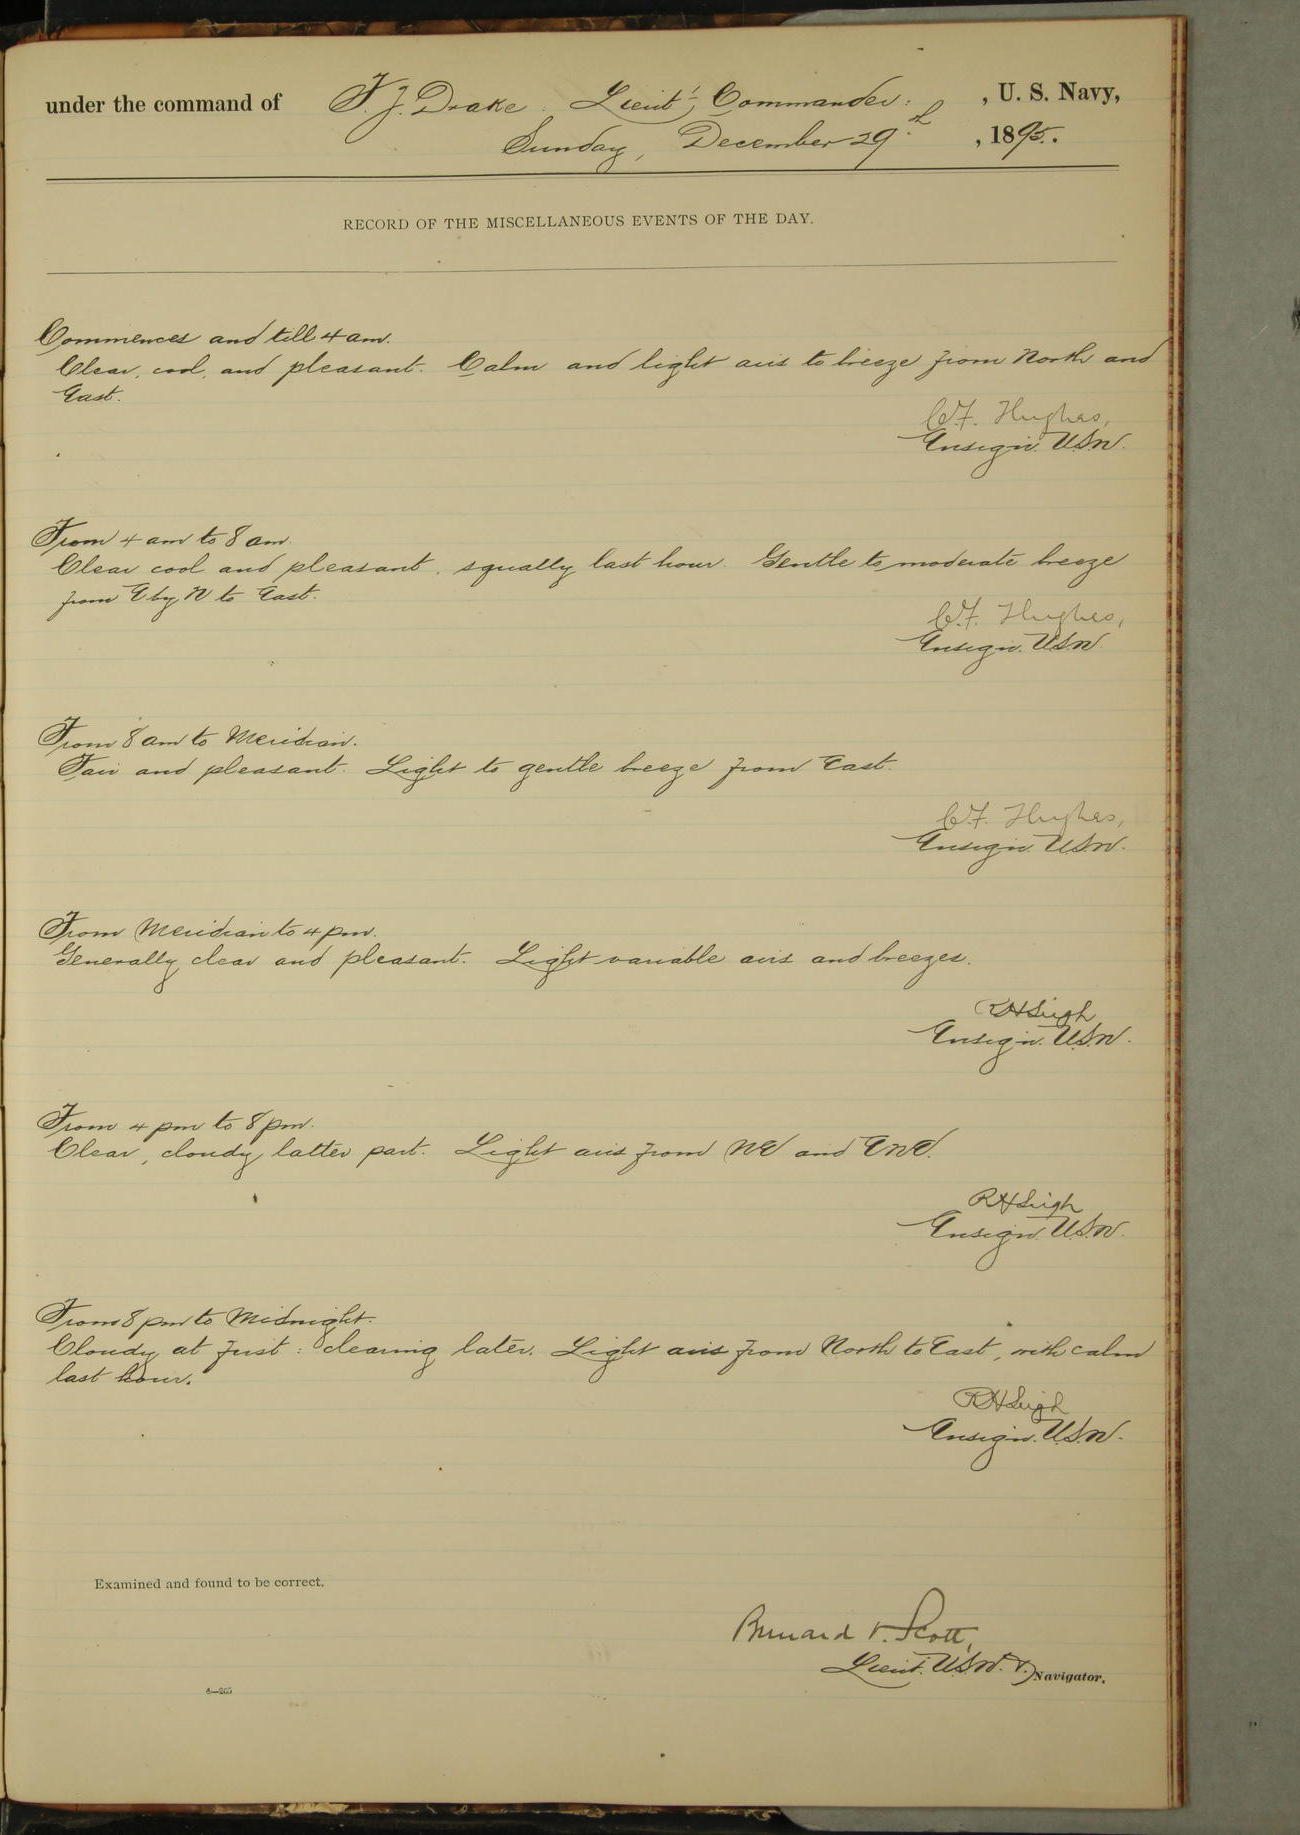 under the command of F. J. Drake. Lieut. Commander. , U. S. Navy,
Sunday, December 29th , 1895.
RECORD OF THE MISCELLANEOUS EVENTS OF THE DAY.
Commences and till 4 am.
Clear, cool, and pleasant. Calm and light airs to breeze from North and
East.
C.F. Hughes,
Ensign. U.S.N.
From 4 am to 8 am.
Clear cool and pleasant, squally last hour. Gentle to moderate breeze
from E by N to East.
C.F. Hughes,
Ensign. U.S.N.
From 8 am to Meridian.
Fair and pleasant. Light to gentle breeze from East.
C.F. Hughes,
Ensign. U.S.N.
From Meridian to 4 pm.
Generally clear and pleasant. Light variable airs and breezes.
RHLeigh
Ensign. U.S.N.
From 4 pm to 8 pm.
Clear, cloudy latter part. Light airs from NE and ENE.
RHLeigh
Ensign. U.S.N.
From 8 pm to Midnight.
Cloudy at first: clearing later. Light airs from North to East, with calm
last hour.
RHLeigh
Ensign. U.S.N.
Examined and found to be correct.
Bernard O. Scott,
Lieut. U.S.N. & Navigator.